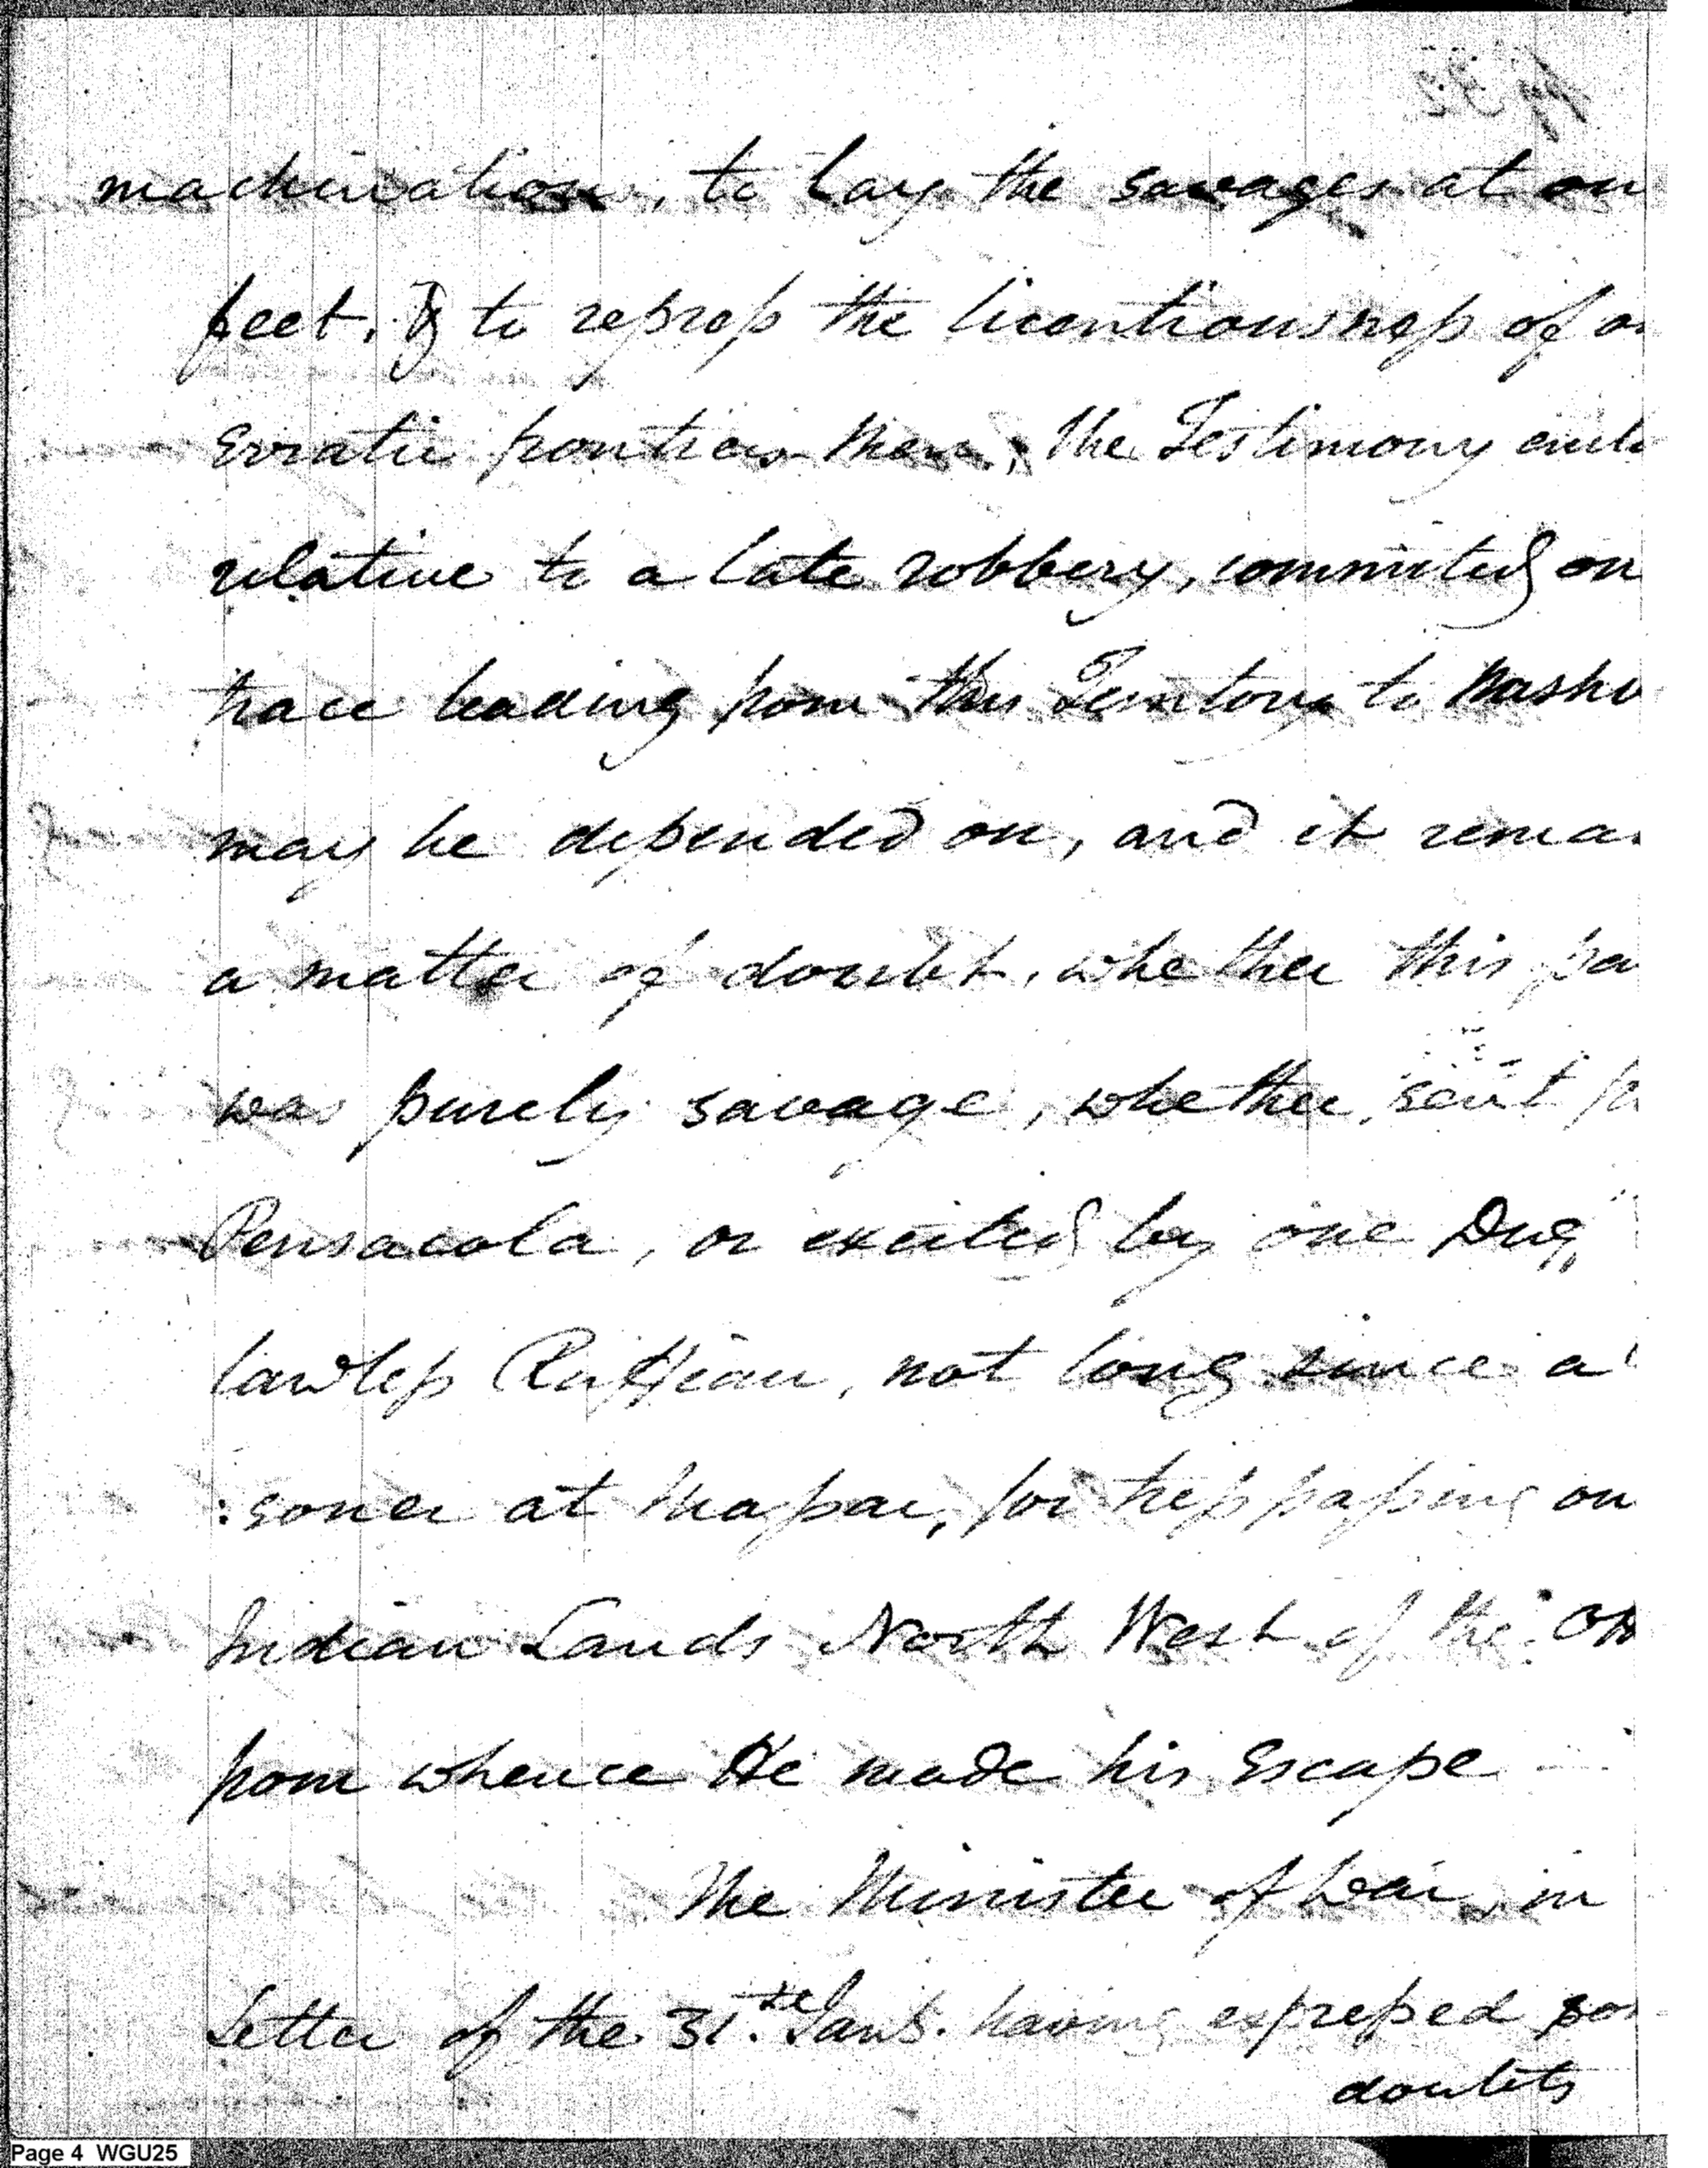 pg 32
machinations, to lay the savages at ou
feet, & to repress the licentiousness of o
Erratic frontier Men, The Testimony encl
relative to a late robbery, committed on
trace leading from this Territory to Nashv
may be depended on, and it remai
a matter of doubt, whether this pa
was purely savage, whether sent fr
Pensacola, or excited by one Dug
lawless Ruffian, not long since a
:soner at Massac, for tresspassing on
Indian Lands North West of the Oh
from whence He made his Escape
The Minister of War, in
Letter of the 31.st Jany. having expressed so
doubts
Page 4 WGU25